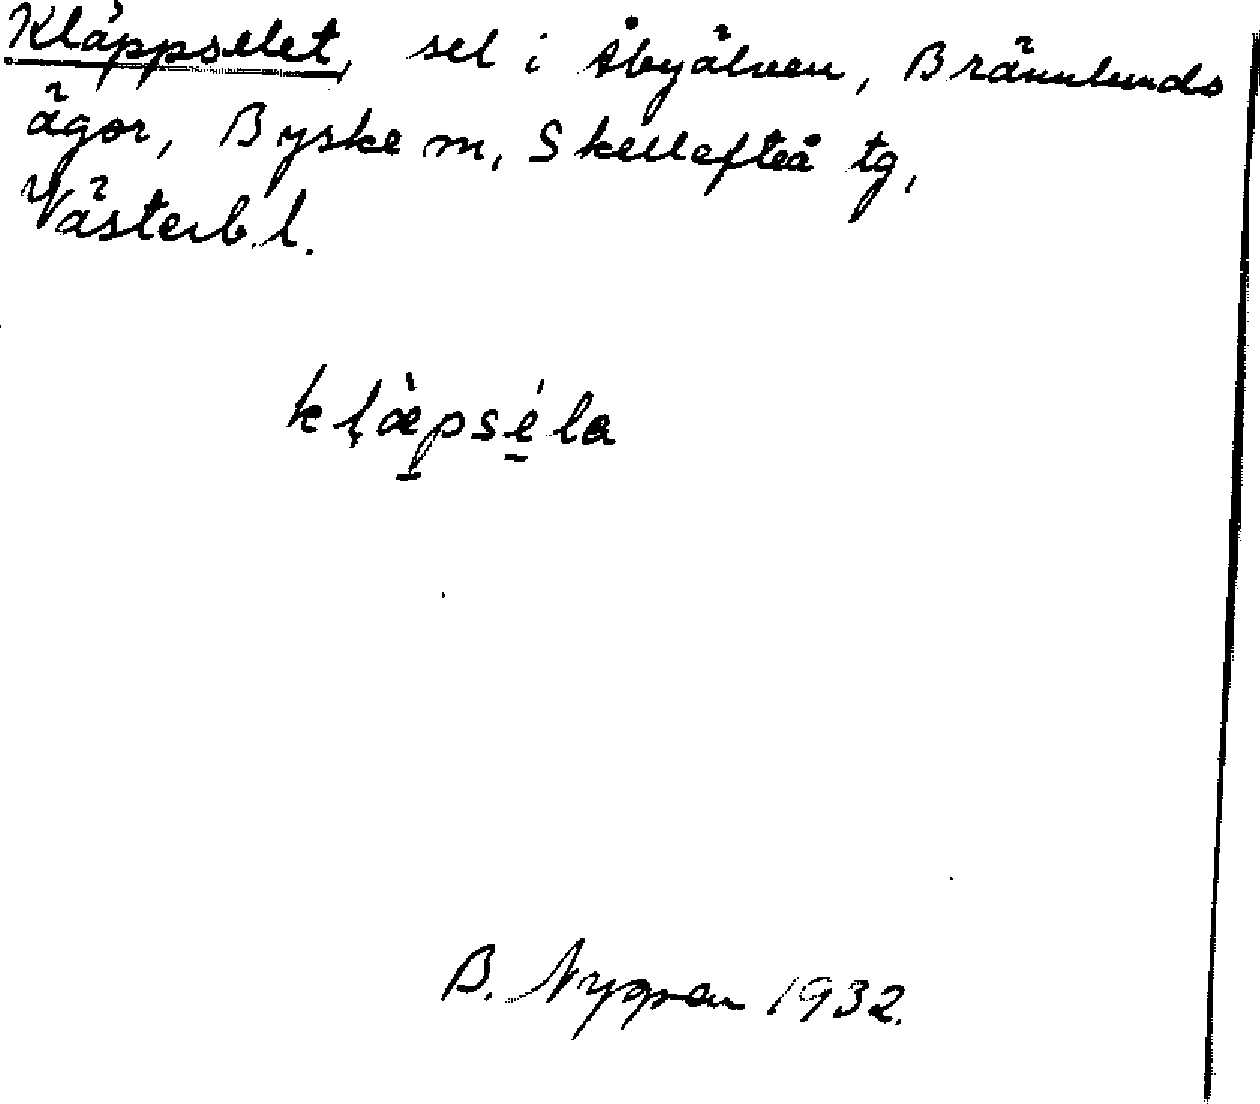 Kläppselet, sel i Åbyälven, Brännlunds
ägor, Byske m, Skellefteå tg,
Västerb. l.
kḷæ̀pséla
B. Nygren 1932.